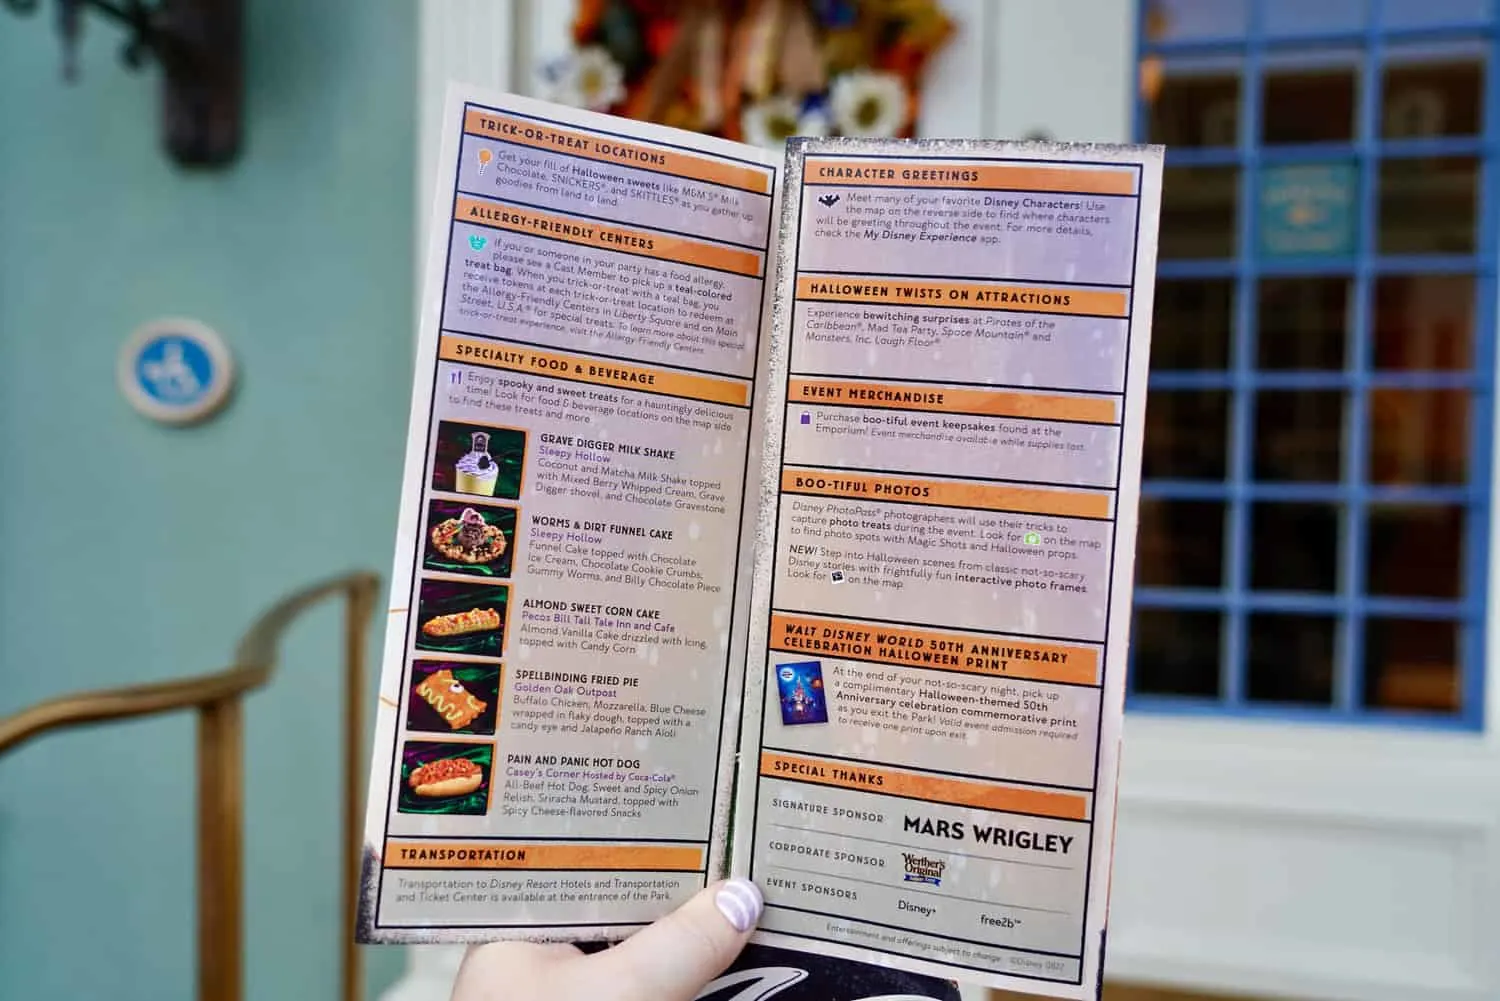 TRICK-OR-TREAT LOCATIONS
Get your fill of Halloween sweets like M&M'S® Milk
Chocolate, SNICKERS®, and SKITTLES® as you gather up
goodies from land to land.
ALLERGY-FRIENDLY CENTERS
If you or someone in your party has a food allergy,
please see a Cast Member to pick up a teal-colored
treat bag. When you trick-or-treat with a teal bag, you
receive tokens at each trick-or-treat location to redeem at
the Allergy-Friendly Centers in Liberty Square and on Main
Street, U.S.A.® for special treats. To learn more about this special
trick-or-treat experience, visit the Allergy-Friendly Centers.
SPECIALTY FOOD & BEVERAGE
Enjoy spooky and sweet treats for a hauntingly delicious
time! Look for food & beverage locations on the map side
to find these treats and more.
GRAVE DIGGER MILK SHAKE
Sleepy Hollow
Coconut and Matcha Milk Shake topped
with Mixed Berry Whipped Cream, Grave
Digger shovel, and Chocolate Gravestone
WORMS & DIRT FUNNEL CAKE
Sleepy Hollow
Funnel Cake topped with Chocolate
Ice Cream, Chocolate Cookie Crumbs,
Gummy Worms, and Billy Chocolate Piece
ALMOND SWEET CORN CAKE
Pecos Bill Tall Tale Inn and Cafe
Almond Vanilla Cake drizzled with Icing,
topped with Candy Corn
SPELLBINDING FRIED PIE
Golden Oak Outpost
Buffalo Chicken, Mozzarella, Blue Cheese
wrapped in flaky dough, topped with a
candy eye and Jalapeño Ranch Aioli
PAIN AND PANIC HOT DOG
Casey's Corner Hosted by Coca-Cola®
All-Beef Hot Dog, Sweet and Spicy Onion
Relish, Sriracha Mustard, topped with
Spicy Cheese-flavored Snacks
TRANSPORTATION
Transportation to Disney Resort Hotels and Transportation
and Ticket Center is available at the entrance of the Park.
CHARACTER GREETINGS
Meet many of your favorite Disney Characters! Use
the map on the reverse side to find where characters
will be greeting throughout the event. For more details,
check the My Disney Experience app.
HALLOWEEN TWISTS ON ATTRACTIONS
Experience bewitching surprises at Pirates of the
Caribbean®, Mad Tea Party, Space Mountain® and
Monsters, Inc. Laugh Floor®
EVENT MERCHANDISE
Purchase boo-tiful event keepsakes found at the
Emporium! Event merchandise available while supplies last.
BOO-TIFUL PHOTOS
Disney PhotoPass® photographers will use their tricks to
capture photo treats during the event. Look for on the map
to find photo spots with Magic Shots and Halloween props.
NEW! Step into Halloween scenes from classic not-so-scary
Disney stories with frightfully fun interactive photo frames.
Look for on the map.
WALT DISNEY WORLD 50TH ANNIVERSARY
CELEBRATION HALLOWEEN PRINT
At the end of your not-so-scary night, pick up
a complimentary Halloween-themed 50th
Anniversary celebration commemorative print
as you exit the Park! Valid event admission required
to receive one print upon exit.
SPECIAL THANKS
SIGNATURE SPONSOR
MARS WRIGLEY
CORPORATE SPONSOR
Werther's
Original
EVENT SPONSORS
Disney+
free2b™
Entertainment and offerings subject to change. ©Disney 0822